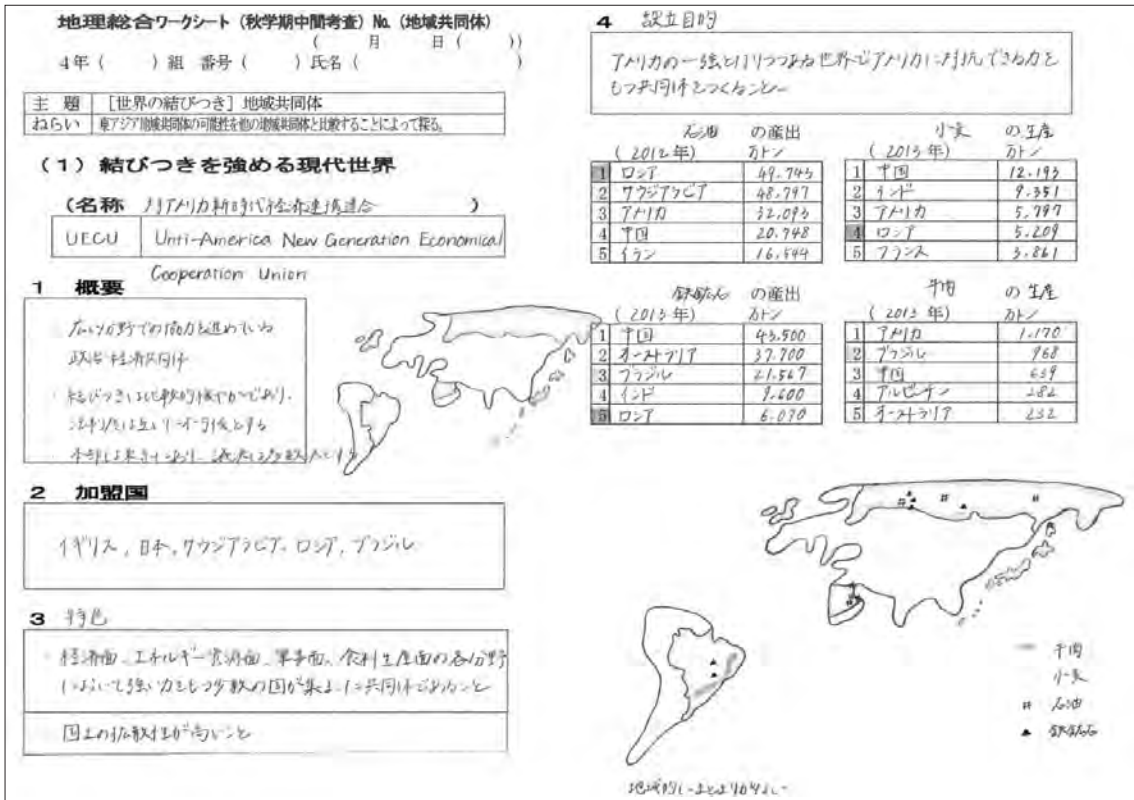 地理総合ワークシート（秋学期中間考査）No.（地域共同体）
（　　月　　日（　　））
4年（　　）組　番号（　　）氏名（　　　　　　　　）
主　題　［世界の結びつき］地域共同体
ねらい　東アジア地域共同体の可能性を他の地域共同体と比較することによって探る。
（1）結びつきを強める現代世界
（名称　対アメリカ新時代経済連携連合　　）
UECU　Unti-America New Generation Economical
Cooperation Union
1　概要
広い分野での協力を進めている
政治・経済共同体
結びつきは比較的緩やかであり、
2　加盟国
イギリス, 日本, サウジアラビア, ロシア, ブラジル
3　特色
・経済面、エネルギー資源面、軍事面、食料生産面の各分野
において強い力をもつ多数の国が集まった共同体であること
国土の拡散性が高いこと
4　設立目的
アメリカの一強となりつつある世界でアメリカに対抗できる力を
もつ共同体をつくること
石油　の産出
（2012年）　万トン
1　ロシア　49.743
2　サウジアラビア　48.797
3　アメリカ　32.093
4　中国　20.748
5　イラン　16.544
小麦　の生産
（2013年）　万トン
1　中国　12.193
2　インド　9.351
3　アメリカ　5.797
4　ロシア　5.209
5　フランス　3.861
鉄鉱石　の産出
（2013年）　万トン
1　中国　43.500
2　オーストラリア　37.700
3　ブラジル　21.567
4　インド　9.600
5　ロシア　6.070
牛肉　の生産
（2013年）　万トン
1　アメリカ　1.170
2　ブラジル　968
3　中国　639
4　アルゼンチン　282
5　オーストラリア　232
牛肉
小麦
石油
鉄鉱石